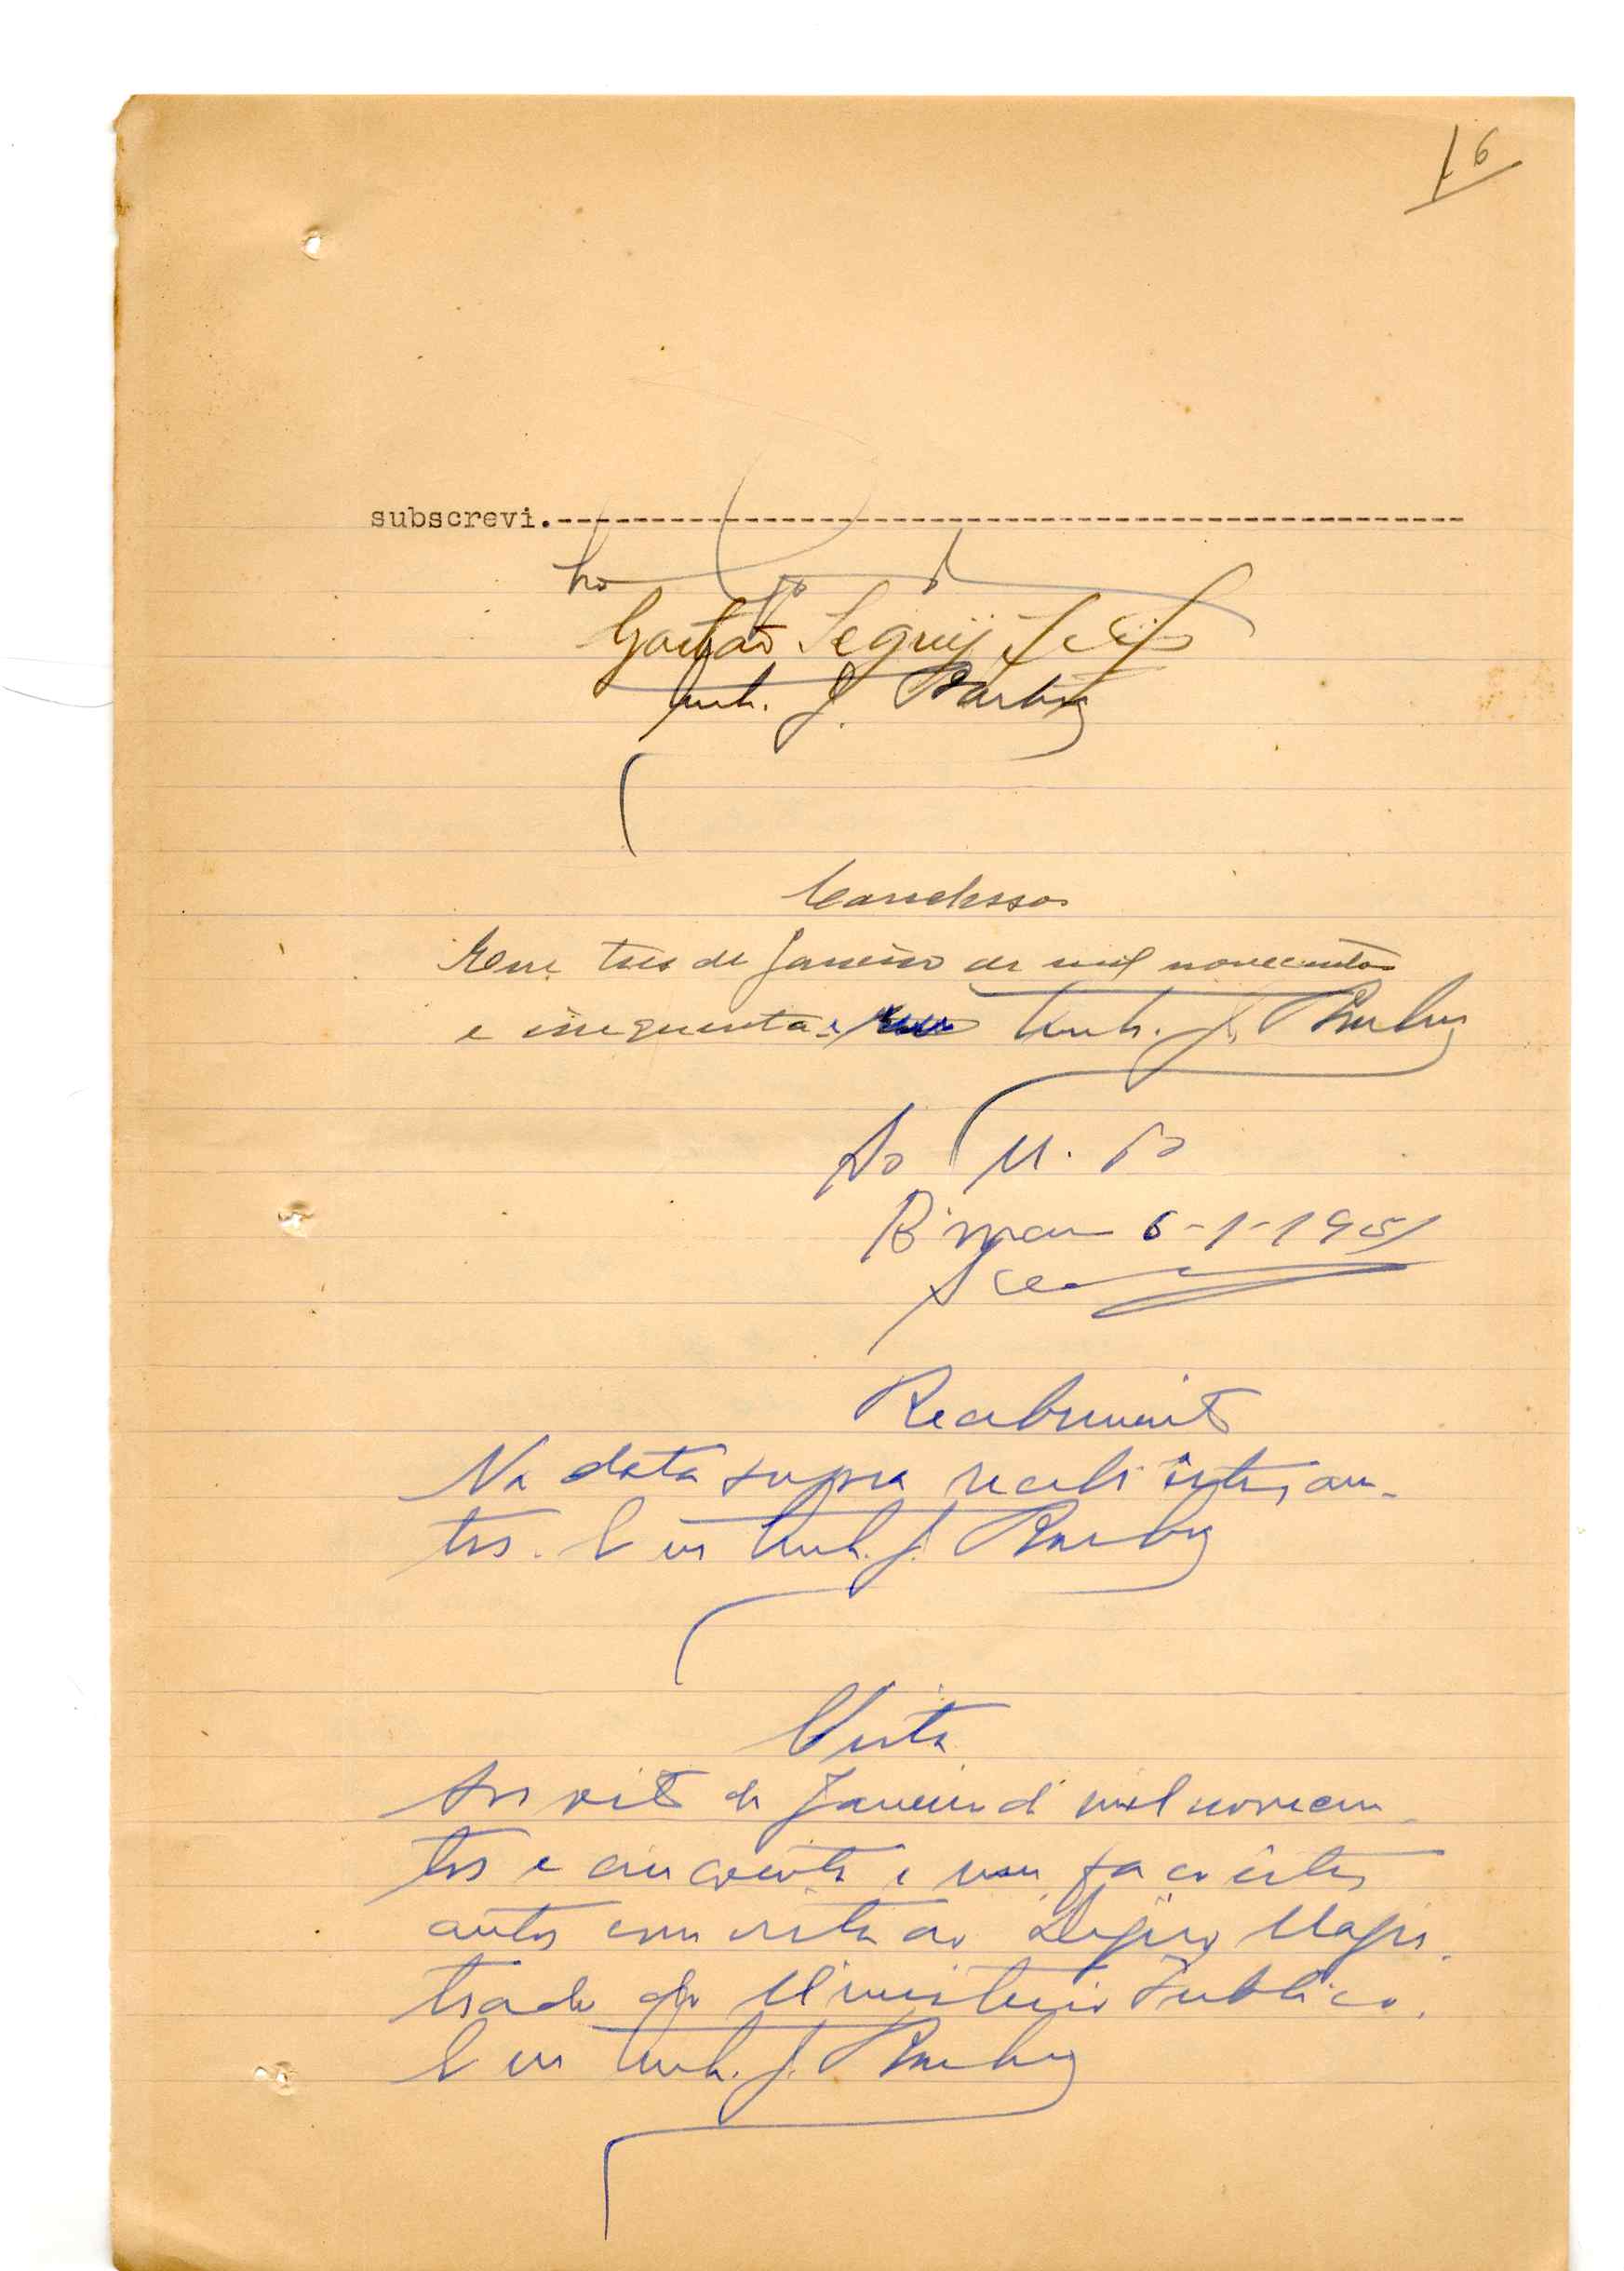 16
subscrevi.----------------------------------------------
Gastão Seguy
Anb. J. Barbosa
Conclusos
Em tres de Janeiro de mil novecentos
e cinquenta e um Anb. J. Barbosa
Ao M. P
Bissau 6-1-1951
Recebimento
Na data supra recebi êstes au-
tos. E eu Anb. J. Barbosa
Vista
Aos oito de Janeiro de mil novecen-
tos e cincoenta e um faço êstes
autos com vista ao Digno Magis-
trado do Ministerio Publico.
E eu Anb. J. Barbosa